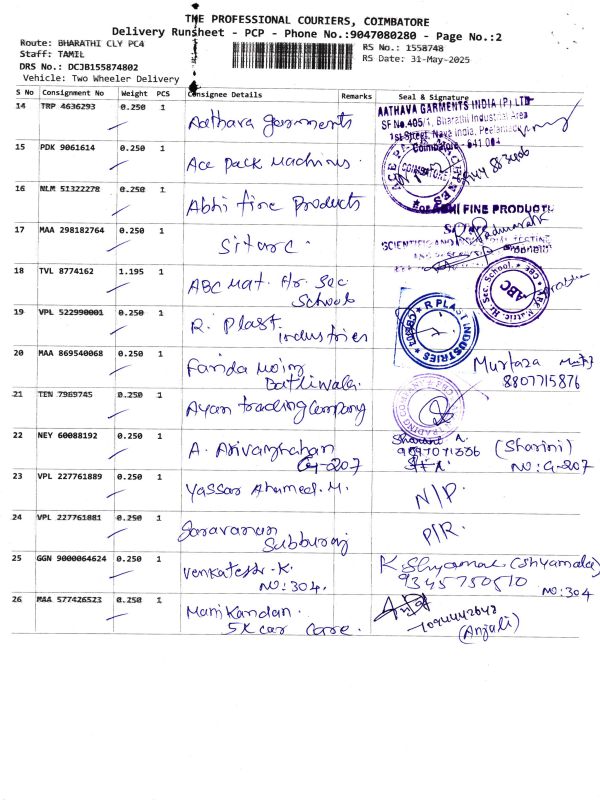 THE PROFESSIONAL COURIERS, COIMBATORE
Delivery Runsheet - PCP - Phone No.:9047080280 - Page No.:2
Route: BHARATHI CLY PC4
RS No.: 1558748
Staff: TAMIL
RS Date: 31-May-2025
DRS No.: DCJB155874802
Vehicle: Two Wheeler Delivery
S No Consignment No Weight PCS Consignee Details Remarks Seal & Signature
14 TRP 4636293 0.250 1 Aathava garments
AATHAVA GARMENTS INDIA (P) LTD
SF No.405/1, Bharathi Industrial Area
1st Street, Nava India, Peelamedu
Coimbatore - 641 004
15 PDK 9061614 0.250 1 Ace pack machines.
COIMBATORE
16 NLM 51322278 0.250 1 Abhi fine Products
For ABHI FINE PRODUCTS
17 MAA 298182764 0.250 1 Sitarc.
18 TVL 8774162 1.195 1 ABC Mat. Hr. Sec.
School
ABC Matric. Hr. Sec. School. CBE
19 VPL 522990001 0.250 1 R. Plast
industries
R PLAST INDUSTRIES
20 MAA 869540068 0.250 1 Farida
Batliwala.
Murtaza
8807715876
21 TEN 7969745 0.250 1 Ayan trading company
TRADING COMPANY
22 NEY 60088192 0.250 1 A. Arivazhahan
G-207
(Sharini)
NO: G-207
23 VPL 227761889 0.250 1 Yassar Ahamed. M.
N/P.
24 VPL 227761881 0.250 1 Saravanan
Subburaj
P/R.
25 GGN 9000064624 0.250 1 Venkatesh. K.
NO: 304.
K. Shyamala (Shyamala)
9345750510
NO: 304
26 MAA 577426523 0.250 1 Manikandan.
5K car care.
(Anjali)